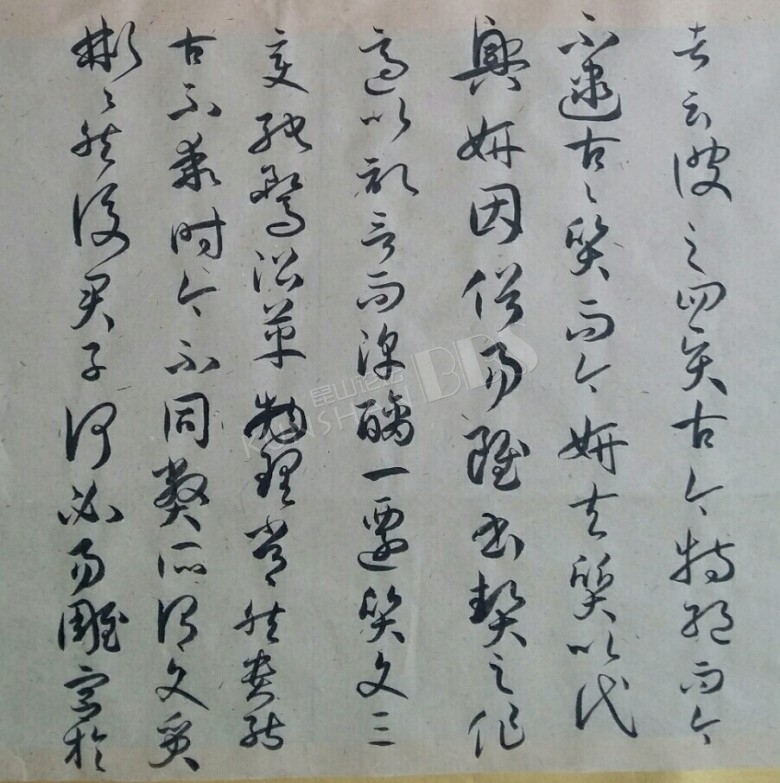 者云彼之四賢古今特絕而今
不逮古〻質而今妍夫質以代
興妍因俗易雖書契之作
適以記言而淳醨一遷質文三
變馳鶩沿革物理常然貴能
古不乖時今不同弊所謂文質
彬〻然後君子何必易雕宮於
昆山论坛
BBS